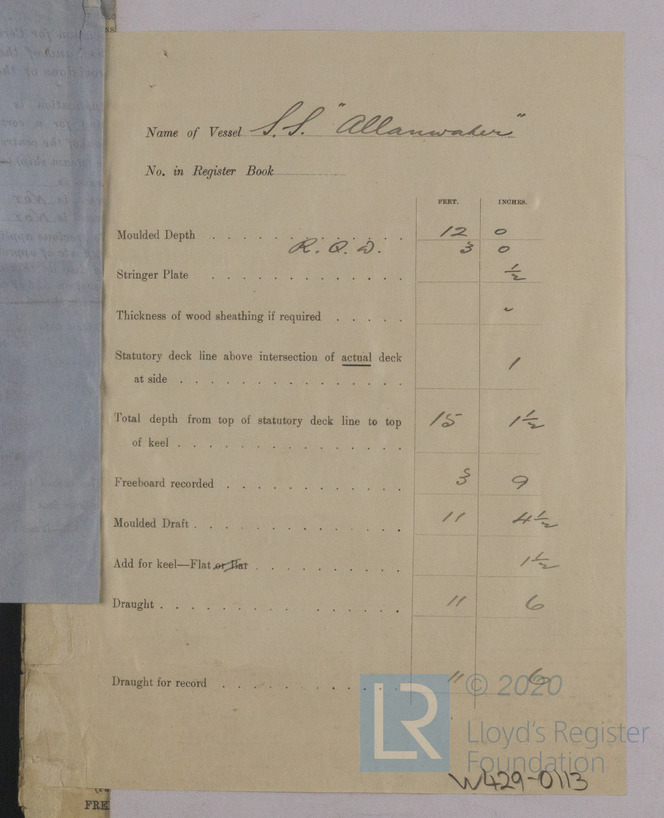 Name of Vessel S.S. "Allanwater"
No. in Register Book
FEET. INCHES.
Moulded Depth 12 0
R. Q. D. 3 0
Stringer Plate ½
Thickness of wood sheathing if required "
Statutory deck line above intersection of actual deck
at side 1
Total depth from top of statutory deck line to top 15 1½
of keel
Freeboard recorded 3 9
Moulded Draft 11 4½
Add for keel—Flat or Bar 1½
Draught 11 6
Draught for record 11 6
LR © 2020
Lloyd's Register
Foundation
W429-0113
FRE